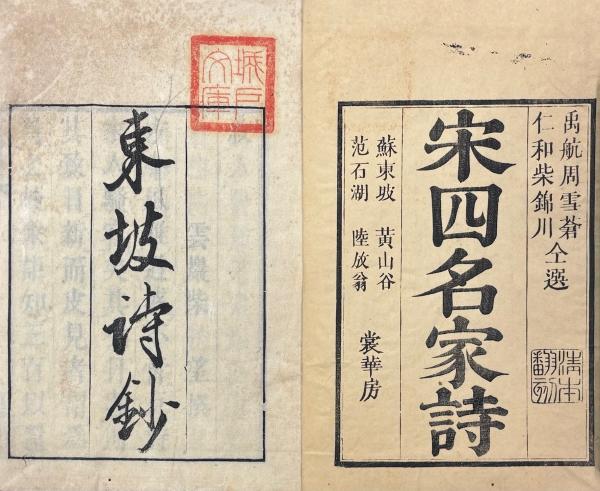 禹航周雪蒼
仁和柴錦川
仝選
宋四名家詩
蘇東坡 黃山谷
范石湖 陸放翁
裳華房
清本
翻刻
城戸
文庫
東坡詩鈔